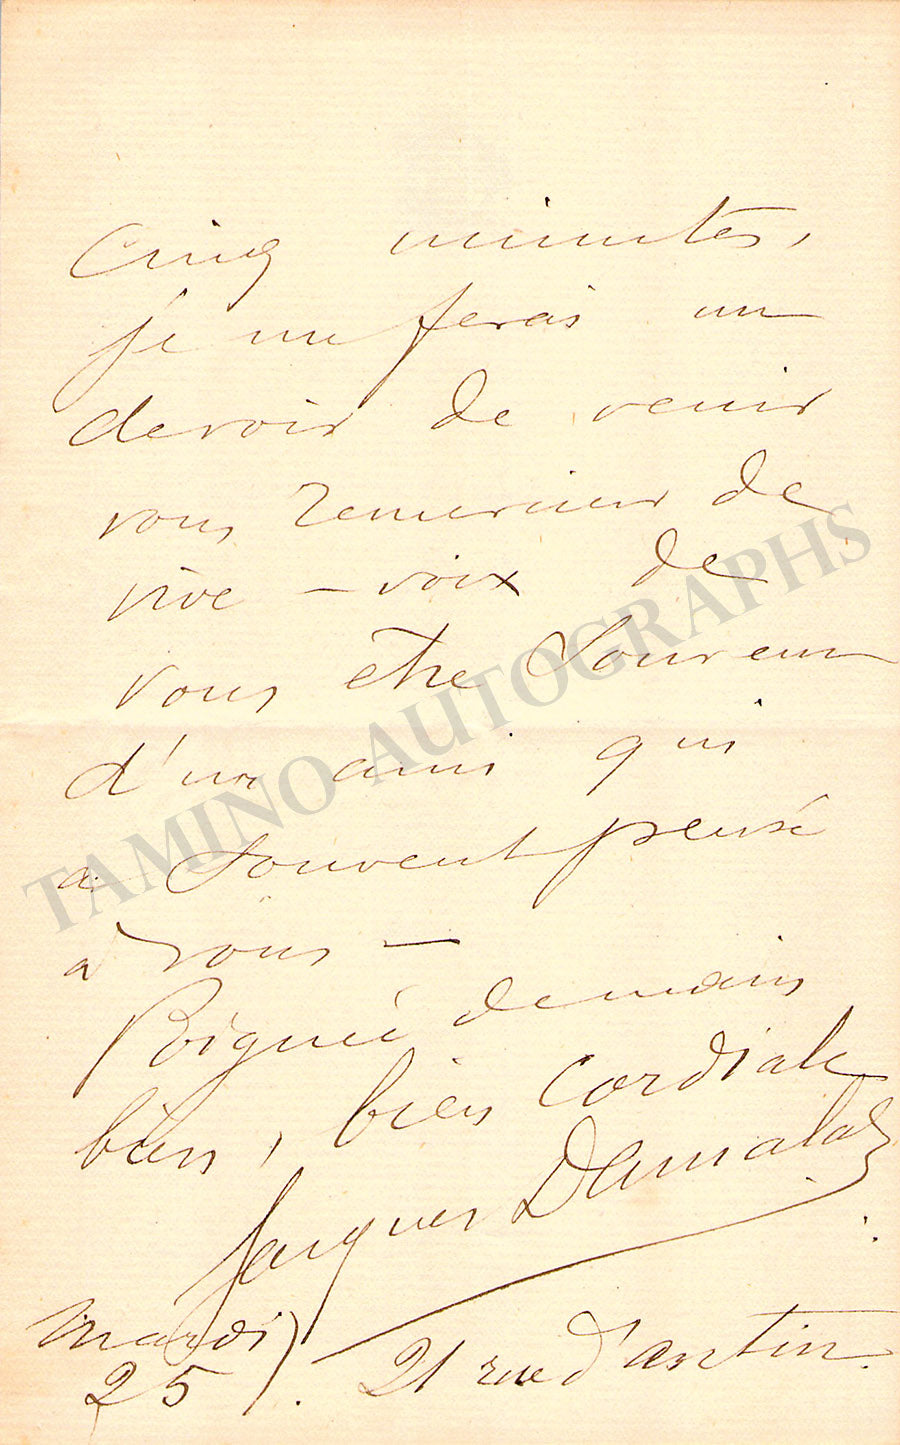 Cinq minutes,
je me ferai un
devoir de venir
vous remercier de
vive-voix de
vous être souvenu
d'un ami qui
a souvent pensé
à vous —
Poignée de mains
bien, bien cordiale
Jacques Damala
Mardi
25). 21 rue d'antin.
TAMINO AUTOGRAPHS